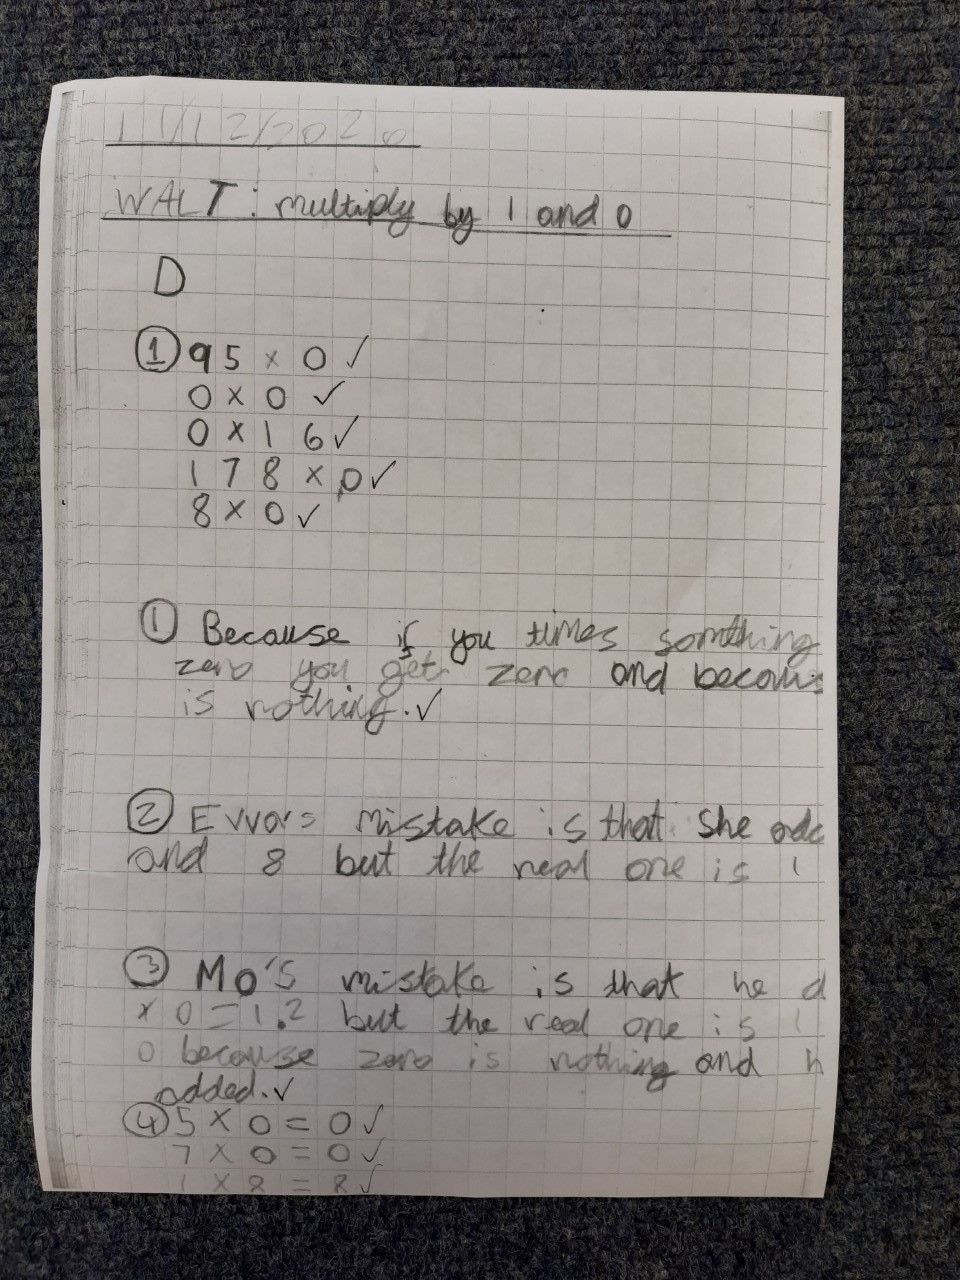 11/12/2020
WALT: multiply by 1 and 0
D
① 95 × 0 ✓
0 × 0 ✓
0 × 16 ✓
178 × 0 ✓
8 × 0 ✓
① Because if you times somthing
zero you get zero and
is nothing. ✓
② mistake is that she
and 8 but the real one is 1
③ Mo's mistake is that he d
× 0 = 1.2 but the real one is 1
0 because zero is nothing and h
added. ✓
④ 5 × 0 = 0 ✓
7 × 0 = 0 ✓
1 × 8 = 8 ✓